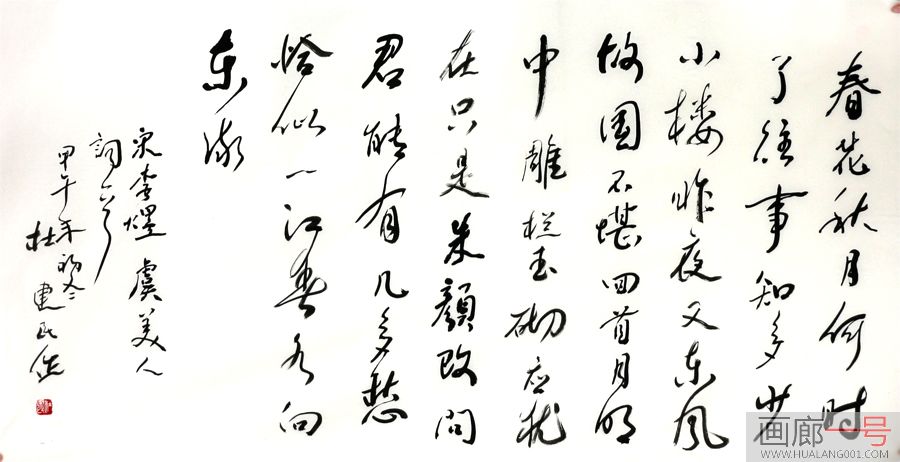 春花秋月何时
了往事知多少
小楼昨夜又东风
故國不堪回首月明
中雕栏玉砌应犹
在只是朱颜改问
君能有几多愁
恰似一江春水向
东流
宋李煜虞美人
词
甲午年初冬
杜建民作
画廊一号
WWW.HUALANG001.COM